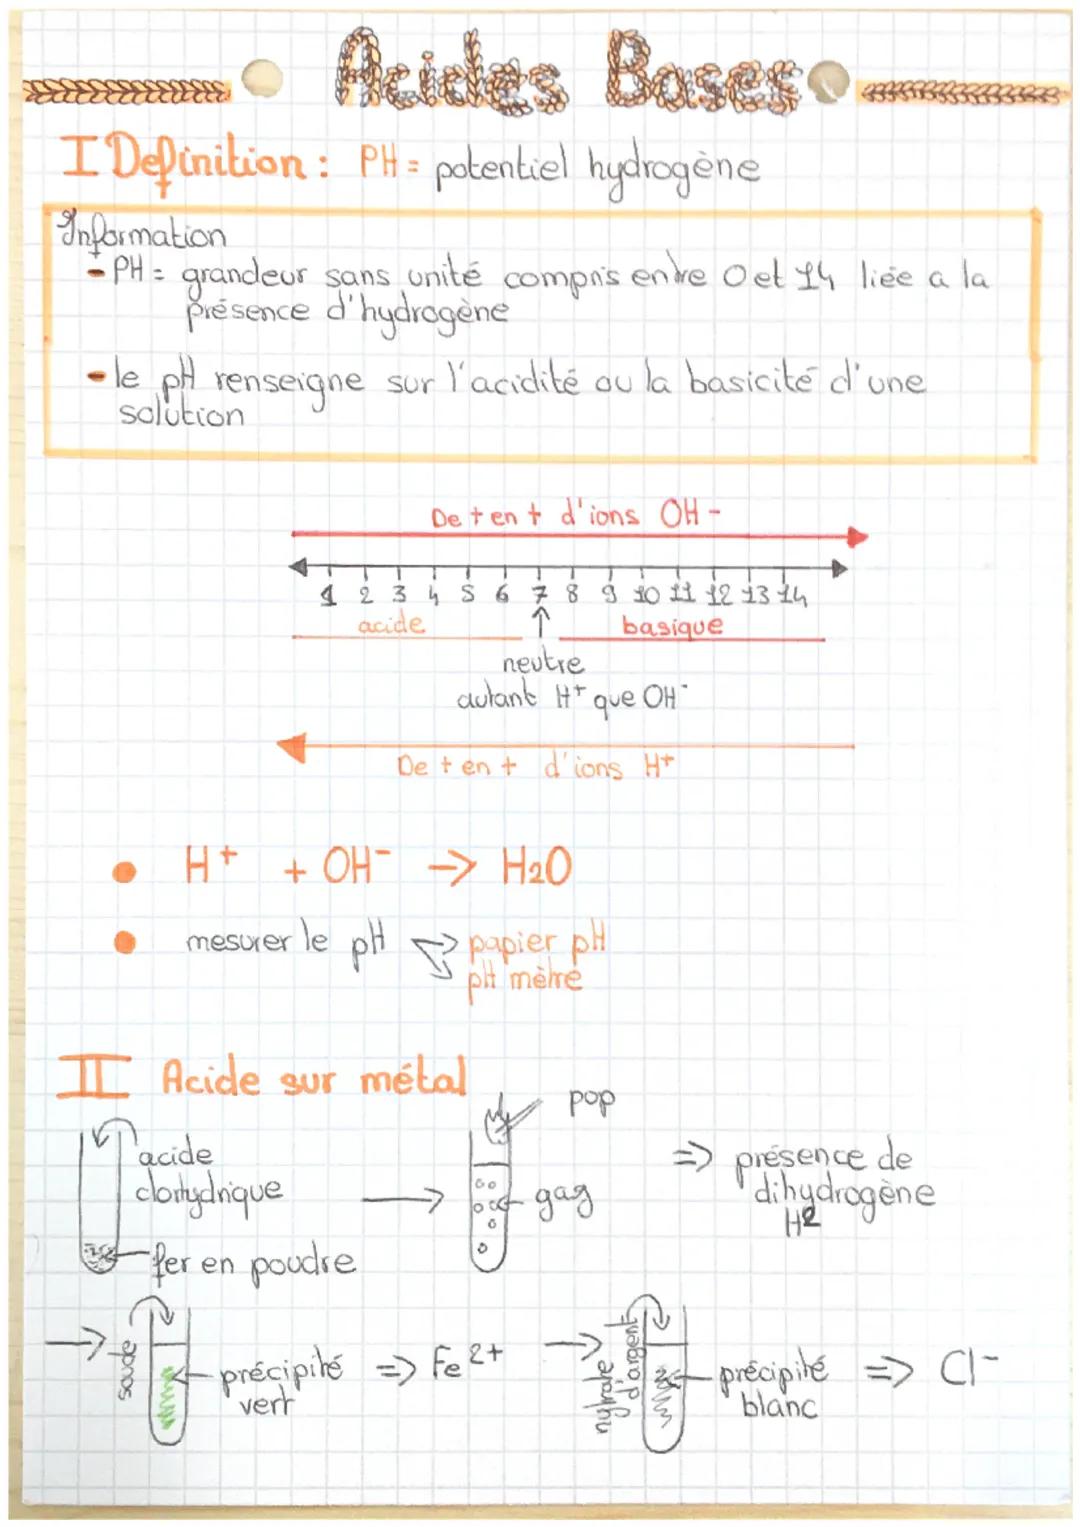 Acides Bases
I Definition : PH = potentiel hydrogène
Information
- PH = grandeur sans unité compris entre 0 et 14 liée a la
présence d'hydrogène
- le pH renseigne sur l'acidité ou la basicité d'une
solution
De + en + d'ions OH -
1 2 3 4 5 6 7 8 9 10 11 12 13 14
acide basique
neutre
autant H+ que OH-
De + en + d'ions H+
H+ + OH- → H2O
mesurer le pH → papier pH
pH mètre
II Acide sur métal
pop
acide
clorhydrique
→
gag
⇒ présence de
dihydrogène
H2
fer en poudre
→ soude
précipité
vert
⇒ Fe 2+
→ nytrate
d'argent
précipité
blanc
⇒ Cl-